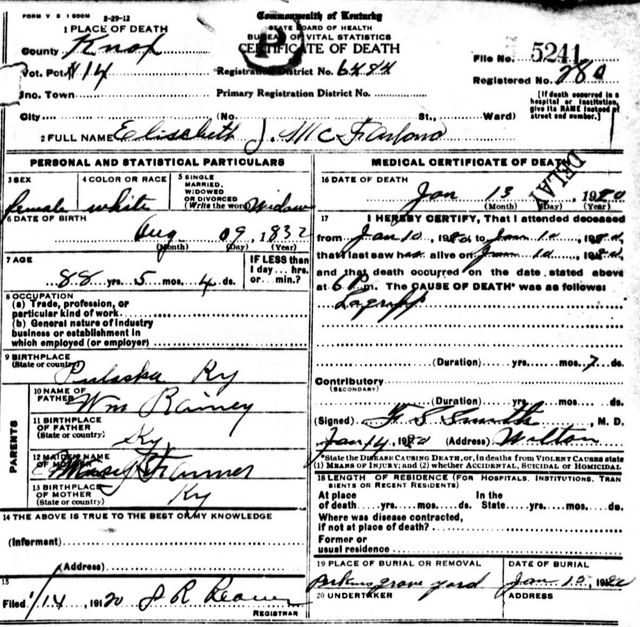 FORM V S 1 500M 8-29-12
Commonwealth of Kentucky
STATE BOARD OF HEALTH
BUREAU OF VITAL STATISTICS
CERTIFICATE OF DEATH
1 PLACE OF DEATH
County Knox
Vot. Pct #14
Ino. Town
City (No. St., Ward)
Registration District No. 6484
Primary Registration District No.
File No. 5241
Registered No. 280
[If death occurred in a hospital or institution, give its NAME instead of street and number.]
2 FULL NAME Elisebeth J. McFarland
PERSONAL AND STATISTICAL PARTICULARS
3 SEX
female
4 COLOR OR RACE
white
5 SINGLE MARRIED, WIDOWED OR DIVORCED
(Write the word) Widow
6 DATE OF BIRTH
Aug 09, 1832
(Month) (Day) (Year)
7 AGE
88 yrs. 5 mos. 4 ds.
IF LESS than
1 day... hrs.
or min.?
8 OCCUPATION
(a) Trade, profession, or
particular kind of work
(b) General nature of industry
business or establishment in
which employed (or employer)
9 BIRTHPLACE
(State or country)
Pulaska Ky
PARENTS
10 NAME OF FATHER
Wm Rainey
11 BIRTHPLACE OF FATHER
(State or country)
Ky
12 MAIDEN NAME OF MOTHER
Farmer
13 BIRTHPLACE OF MOTHER
(State or country)
Ky
14 THE ABOVE IS TRUE TO THE BEST OF MY KNOWLEDGE
(Informant)
(Address)
15
Filed 1/14, 191 20 J R
REGISTRAR
MEDICAL CERTIFICATE OF DEATH
DELAY
16 DATE OF DEATH
Jan 13, 19
(Month) (Day) (Year)
17 I HEREBY CERTIFY, That I attended deceased
from Jan 10, to Jan
that I last saw h alive on
and that death occurred on the date stated above
at 6 P m. The CAUSE OF DEATH* was as follows:
Lagripp
(Duration) yrs. mos. 7 ds.
Contributory
(SECONDARY)
(Duration) yrs. mos. ds.
(Signed) Smith, M. D.
Jan 14, (Address) Wilton
*State the DISEASE CAUSING DEATH, or, in deaths from VIOLENT CAUSES state
(1) MEANS OF INJURY; and (2) whether ACCIDENTAL, SUICIDAL or HOMICIDAL
18 LENGTH OF RESIDENCE (FOR HOSPITALS, INSTITUTIONS, TRANSIENTS OR RECENT RESIDENTS)
At place of death yrs. mos. ds. In the State yrs. mos. ds.
Where was disease contracted,
if not at place of death?
Former or
usual residence
19 PLACE OF BURIAL OR REMOVAL
Perkins grave yard
DATE OF BURIAL
Jan
20 UNDERTAKER
ADDRESS